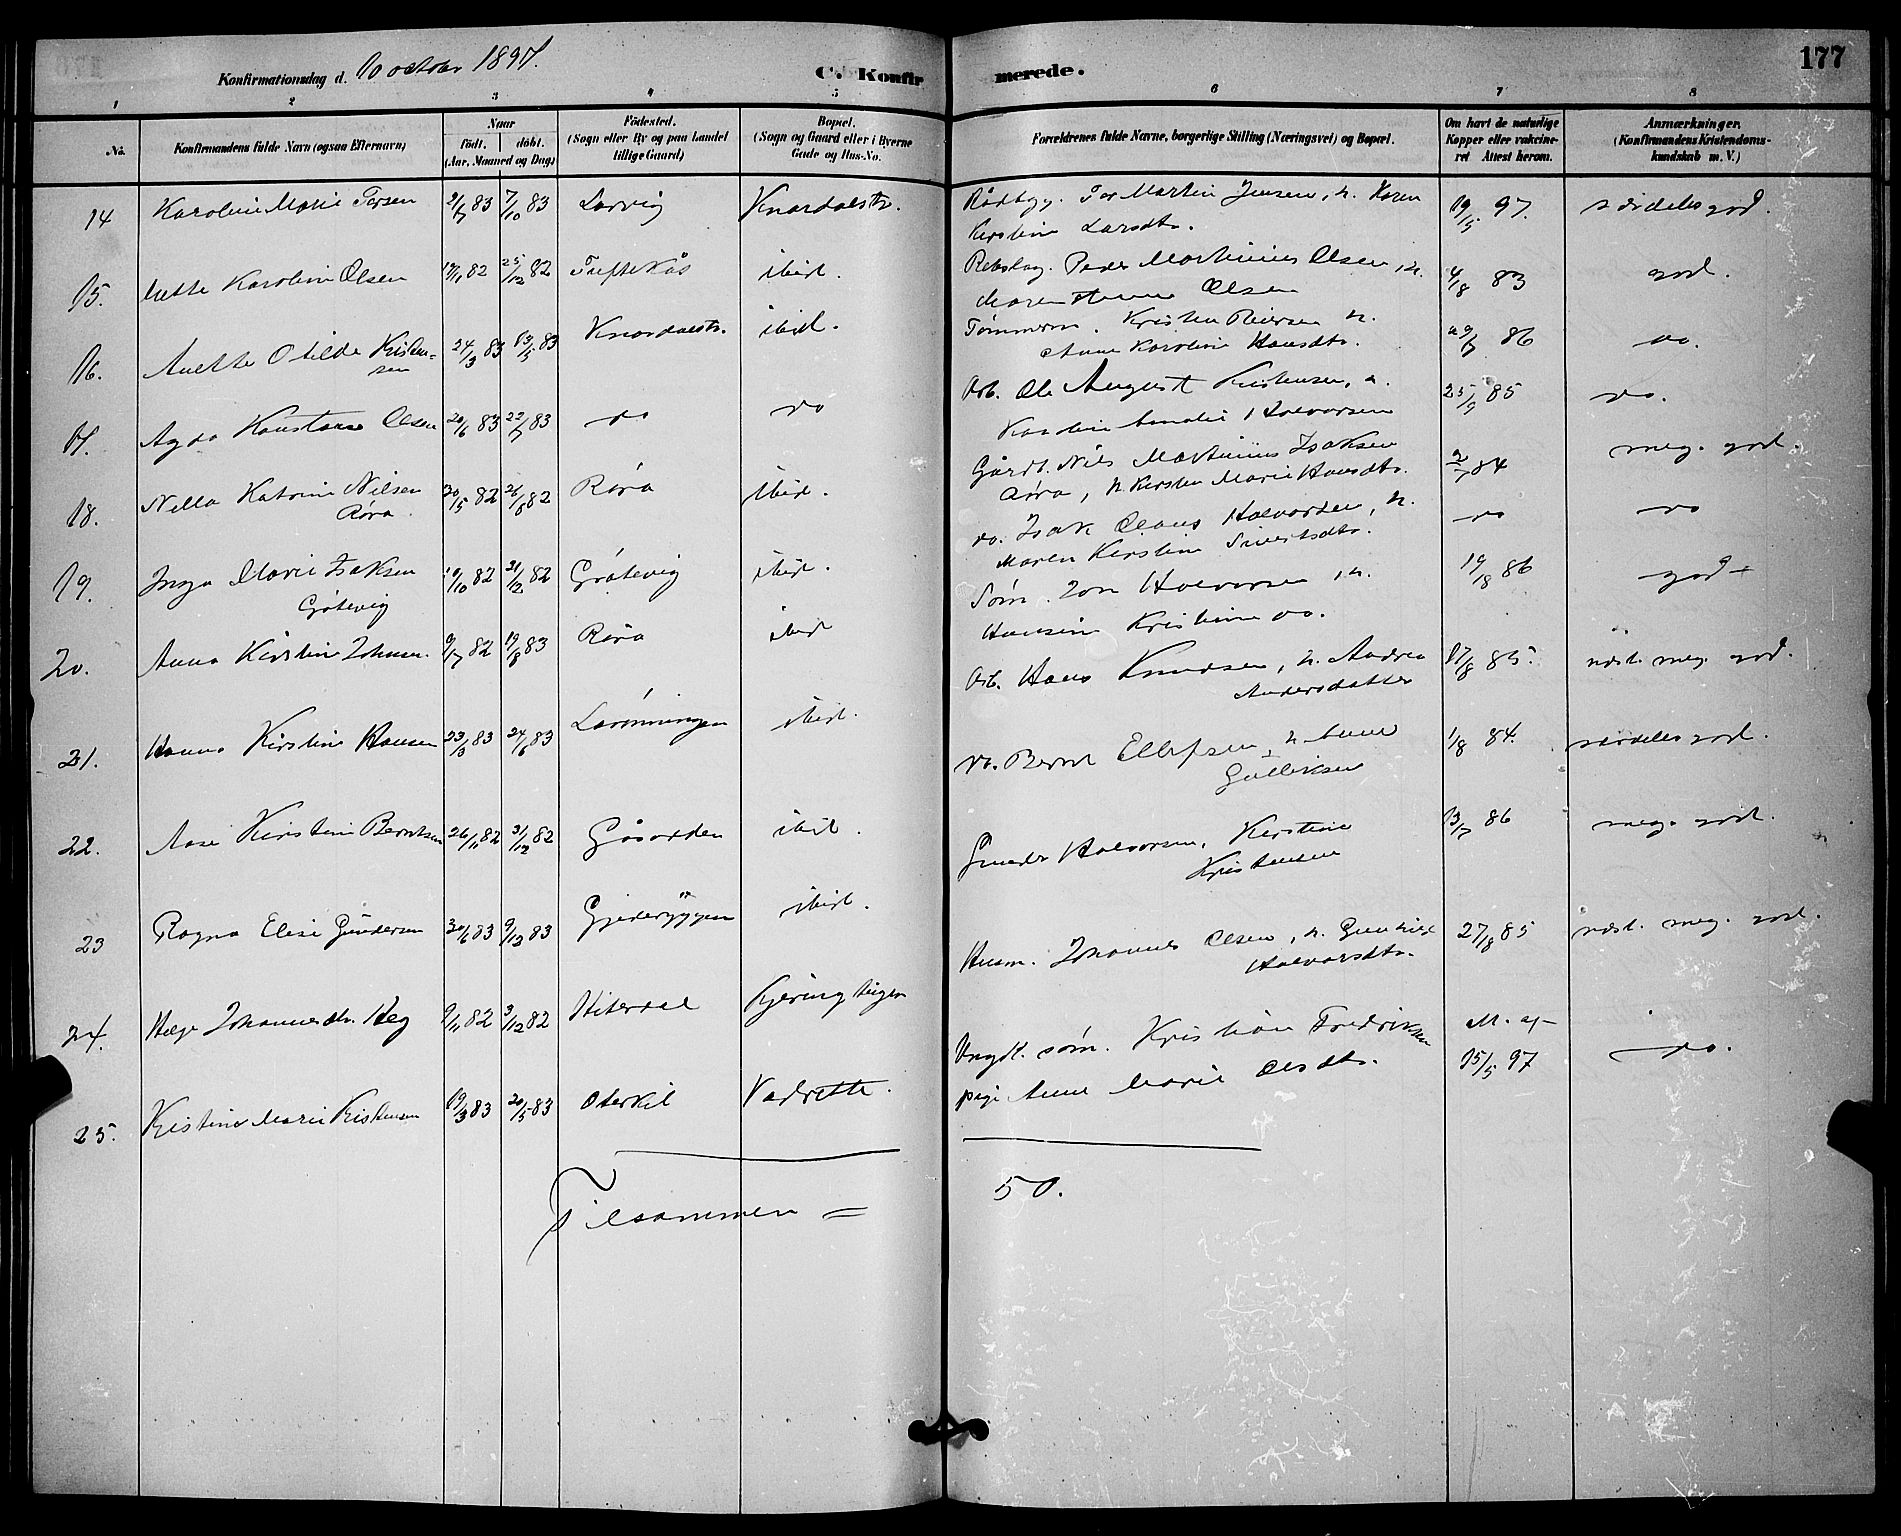 177
Konfirmationsdag d. 10 octobr 1897.
C. Konfirmerede.
1 2 3 4 5 6 7 8
No.
Konfirmandens fulde Navn (ogsaa Efternavn)
Naar
födt. döbt.
(Aar, Maaned og Dag)
Födested.
(Sogn eller By og paa Landet
tillige Gaard)
Bopæl.
(Sogn og Gaard eller i Byerne
Gade og Hus-No.
Forældrenes fulde Navne, borgerlige Stilling (Næringsvei) og Bopæl.
Om havt de naturlige
Kopper eller vaksine-
ret Attest herom.
Anmærkninger.
(Konfirmandens Kristendoms-
kundskab m. V.)
14 Karoline Marie Torsen 21/7 83 7/10 83 Larvig Knardalstr. Tor Martin Jensen, h. Karen
Kirstine Larsdtr. 19/5 97. særdeles god.
15. Mette Karoline Olsen 82 25/12 82 Tuftekås ibid. Rebslag. Peder Martinius Olsen, h.
Maren Hanna Olsen 4/8 83 god.
16. Anette Otilde Kristen-
sen 24/3 83 13/5 83 Knardalstr. ibid. Tømmerm. Kristen Reiersen h.
Anne Karoline Hansdtr. 29/7 86 do.
17. Agda Konstanse Olsen 20/6 83 22/7 83 do do Arb. Ole August Kristensen, h.
Karoline Amalie Halvorsen 25/9 85 do.
18. Nella Katrine Nilsen
Røra. 30/5 82 26/8 82 Røra ibid. Gårdb. Nils Martinius Isaksen
Røra, h. Kirsten Marie Hansdtr. 84 meg. god.
19. Inga Marie Isaksen
Grøtevig 10/10 82 31/12 82 Grøtevig ibid. do. Isak Olaus Halvorsen, h.
Maren Kirstine Sivertsdtr. do do
20. Anna Kirstine Johnsen. 9/7 82 19/8 83 Røra ibid Søm. Jon Halvorsen, h.
Hansine Kristine do. 19/8 86 god
21. Hanna Kirstine Hansen 23/5 83 24/6 83 Larønningen ibid. Arb. Hans Knudsen, h. Andrea
Andersdatter 17/8 85. næst. meg. god.
22. Aase Kirstine Berntsen 26/11 82 31/12 82 Gåsodden ibid. do. Bernt Ellefsen, h. Anne
Gulliksen 1/8 84. særdeles god.
23 Ragna Elise Gundersen 30/6 83 9/12 83 Gjederyggen ibid. Gunder Halvorsen, Kirstine
Kristensen 13/7 86 meg. god.
24. Hæge Johannesdtr. Heg 9/11 82 3/12 82 Hiterdal Kjeringteigen Husm. Johannes Olsen, h. Gunhild
Halvorsdtr. 27/8 85 næst. meg. god.
25. Kristine Marie Kristensen 19/3 83 20/5 83 Oterkil Vadrette. Ungk. søm. Kristian Fredriksen
pige Anne Marie Olsdtr. M. a—
15/5 97 do.
Tilsammen = 50.